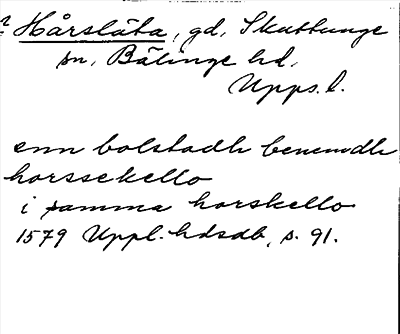 ? Hårslåta, gd, Skuttunge
sn, Bälinge hd,
Upps. l.
enn bolstadh benemdh
horssekello
i samma horskello
1579 Uppl. hdsdb, s. 91.